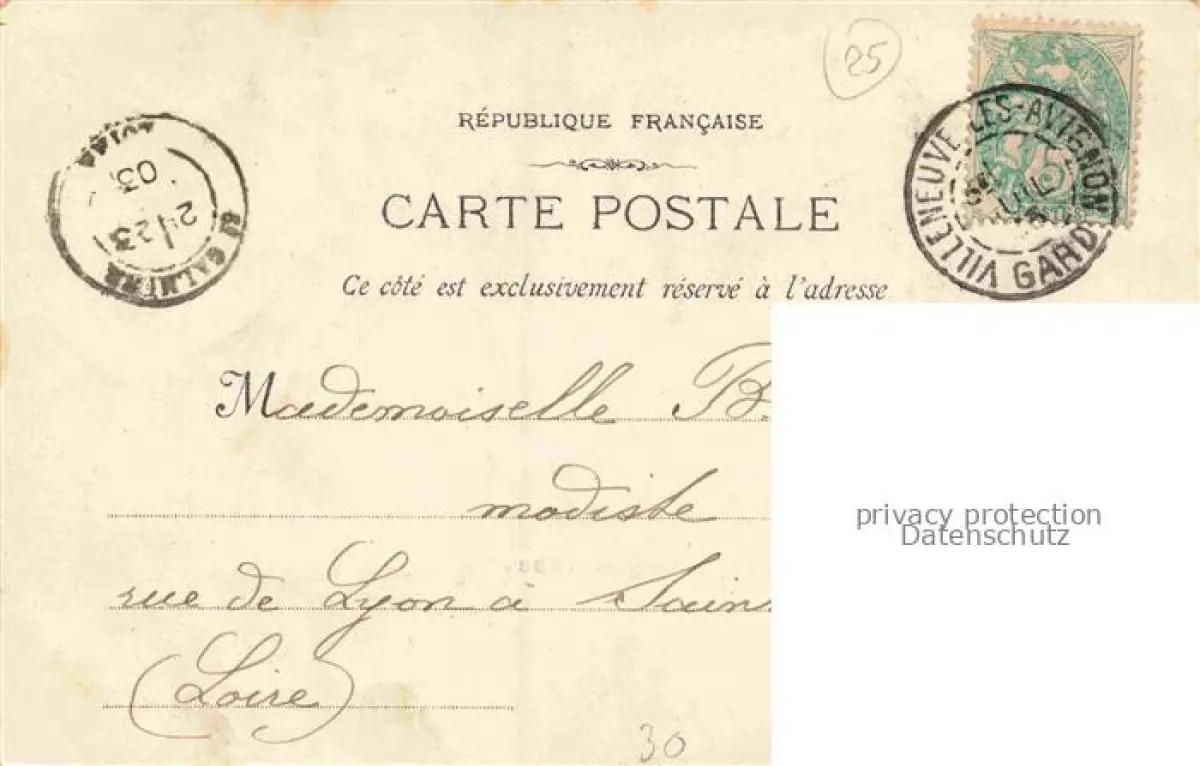 25
RÉPUBLIQUE FRANÇAISE
CARTE POSTALE
Ce côté est exclusivement réservé à l'adresse
VILLENEUVE-LES-AVIGNON
GARD
5
ST GALMIER
23
03
LOIRE
Mademoiselle B
modiste
rue de Lyon à Sain
(Loire)
30
privacy protection
Datenschutz